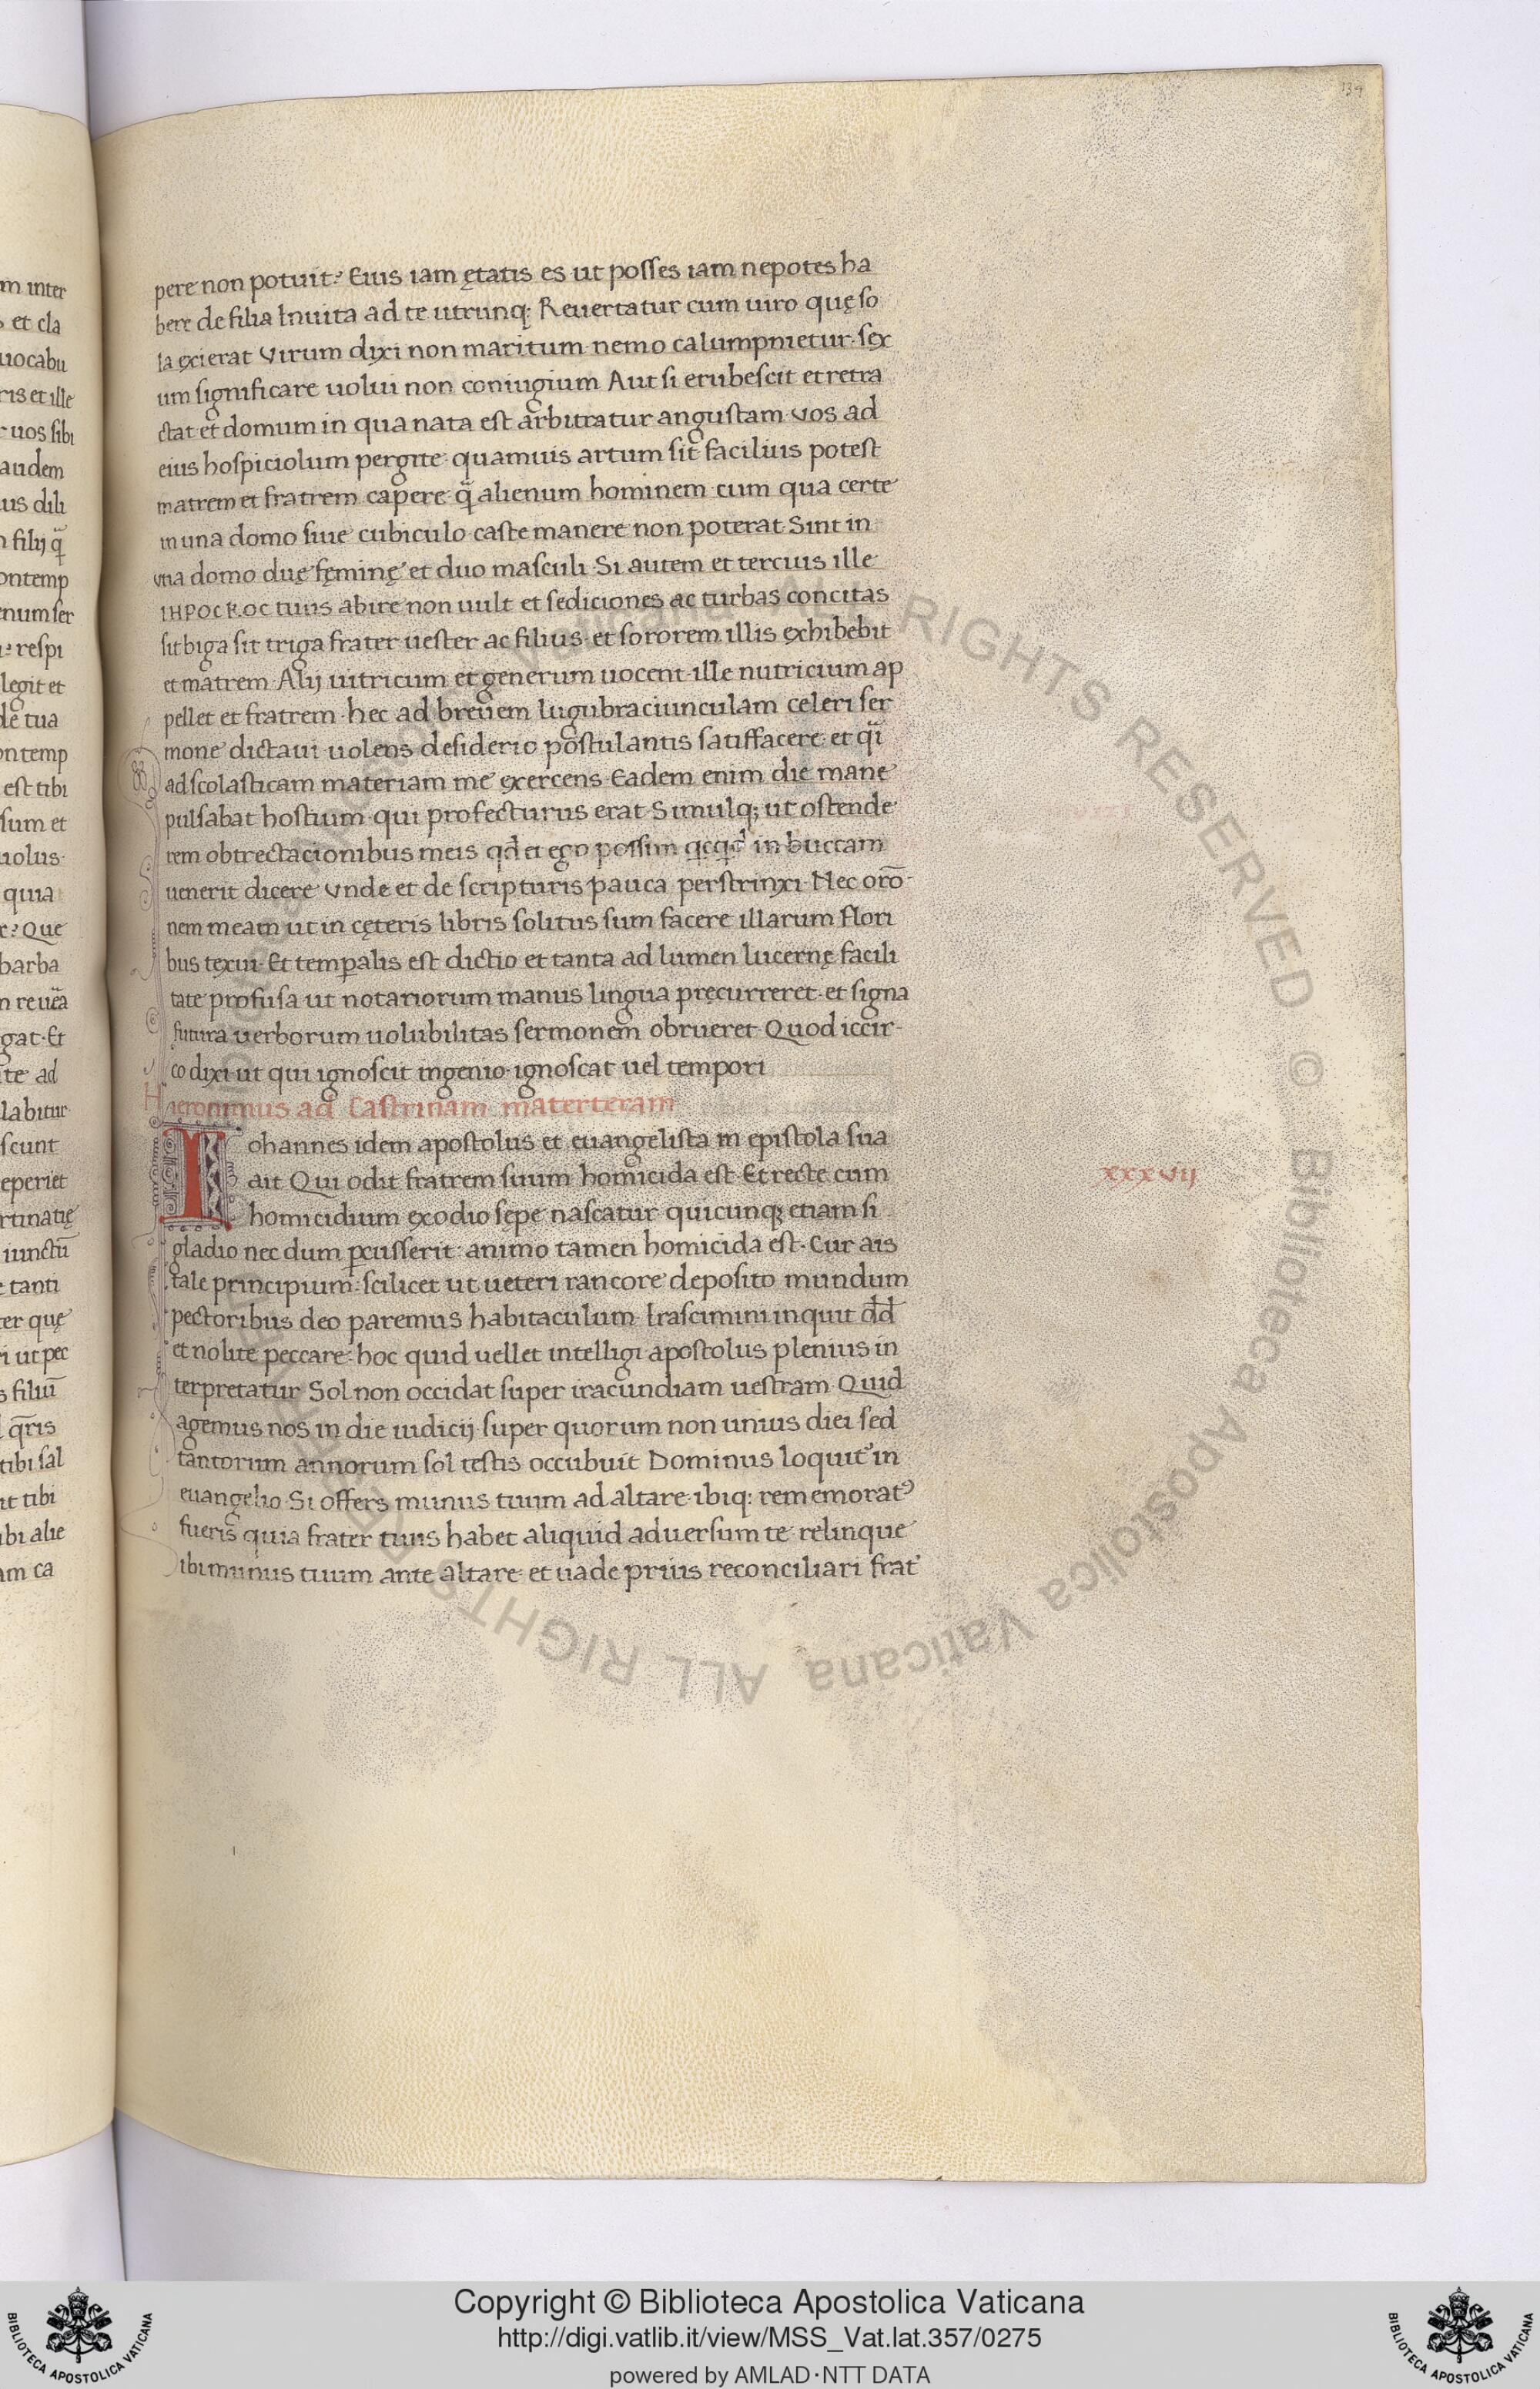 134
pere non potuit? Eius iam ętatis es ut posses iam nepotes ha
bere de filia Inuita ad te utrunq; Reuertatur cum uiro quę so
la exierat Virum dixi non maritum nemo calumpnietur sex
um significare uolui non coniugium Aut si erubescit et retra
ctat et domum in qua nata est arbitratur angustam vos ad
eius hospiciolum pergite quamuis artum sit facilius potest
matrem et fratrem capere q̃ alienum hominem cum qua certe
in una domo siue cubiculo caste manere non poterat Sint in
vna domo duę fęminę et duo masculi Si autem et tercius ille
ΙΗΡΟCΚΟC tuus abire non uult et sediciones ac turbas concitas
sit biga sit triga frater uester ac filius et sororem illis exhibebit
et matrem Alij uitricum et generum uocent ille nutricium ap
pellet et fratrem hec ad breuem lugubraciunculam celeri ser
mone dictaui uolens desiderio postulantis satisfacere et q̃i
ad scolasticam materiam me exercens Eadem enim die mane
pulsabat hostium qui profecturus erat Simulq; ut ostende
rem obtrectacionibus meis qd̃ et ego possim qcqd in buccam
uenerit dicere Vnde et de scripturis pauca perstrinxi Nec orõ
nem meam ut in cęteris libris solitus sum facere illarum flori
bus texui Et temꝑalis est dictio et tanta ad lumen lucernę facili
tate profusa ut notariorum manus lingua pręcurreret et signa
futura uerborum uolubilitas sermonem obrueret Quod iccir
co dixi ut qui ignoscit ingenio ignoscat uel tempori
Hieronimus ad Castrinam materteram
Iohannes idem apostolus et euangelista in epistola sua
ait Qui odit fratrem suum homicida est Et recte cum
xxxvij
homicidium ex odio sępe nascatur quicunq; etiam si
gladio nec dum ꝑcusserit: animo tamen homicida est. Cur ais
tale principium: scilicet ut ueteri rancore deposito mundum
pectoribus deo paremus habitaculum Irascimini inquit dd̃
et nolite peccare: hoc quid uellet intelligi apostolus plenius in
terpretatur Sol non occidat super iracundiam uestram Quid
agemus nos in die iudicij super quorum non unius diei sed
tantorum annorum sol testis occubuit Dominus loquit᾽ in
euangelio Si offers munus tuum ad altare ibiq; rememorat᾽
fueris quia frater tuus habet aliquid aduersum te relinque
ibi munus tuum ante altare et uade prius reconciliari frat᾽
m inter
et cla
uocabu
ris et ille
r uos sibi
audem
us dili
n filij q̃
ontemp
enum ser
respi
legit et
de tua
ontemp
est tibi
sum et
uolus
quia
e? Que
barba
gat. Et
te ad
labitur
scunt
eperiet
rtinatię
iunctũ
e tanti
ter quę
ri ut pec
s filiũ
qr̃is
tibi sal
it tibi
ibi alie
am ca
© Biblioteca Apostolica Vaticana ALL RIGHTS RESERVED
Copyright © Biblioteca Apostolica Vaticana
http://digi.vatlib.it/view/MSS_Vat.lat.357/0275
powered by AMLAD·NTT DATA
BIBLIOTECA APOSTOLICA VATICANA
BIBLIOTECA APOSTOLICA VATICANA